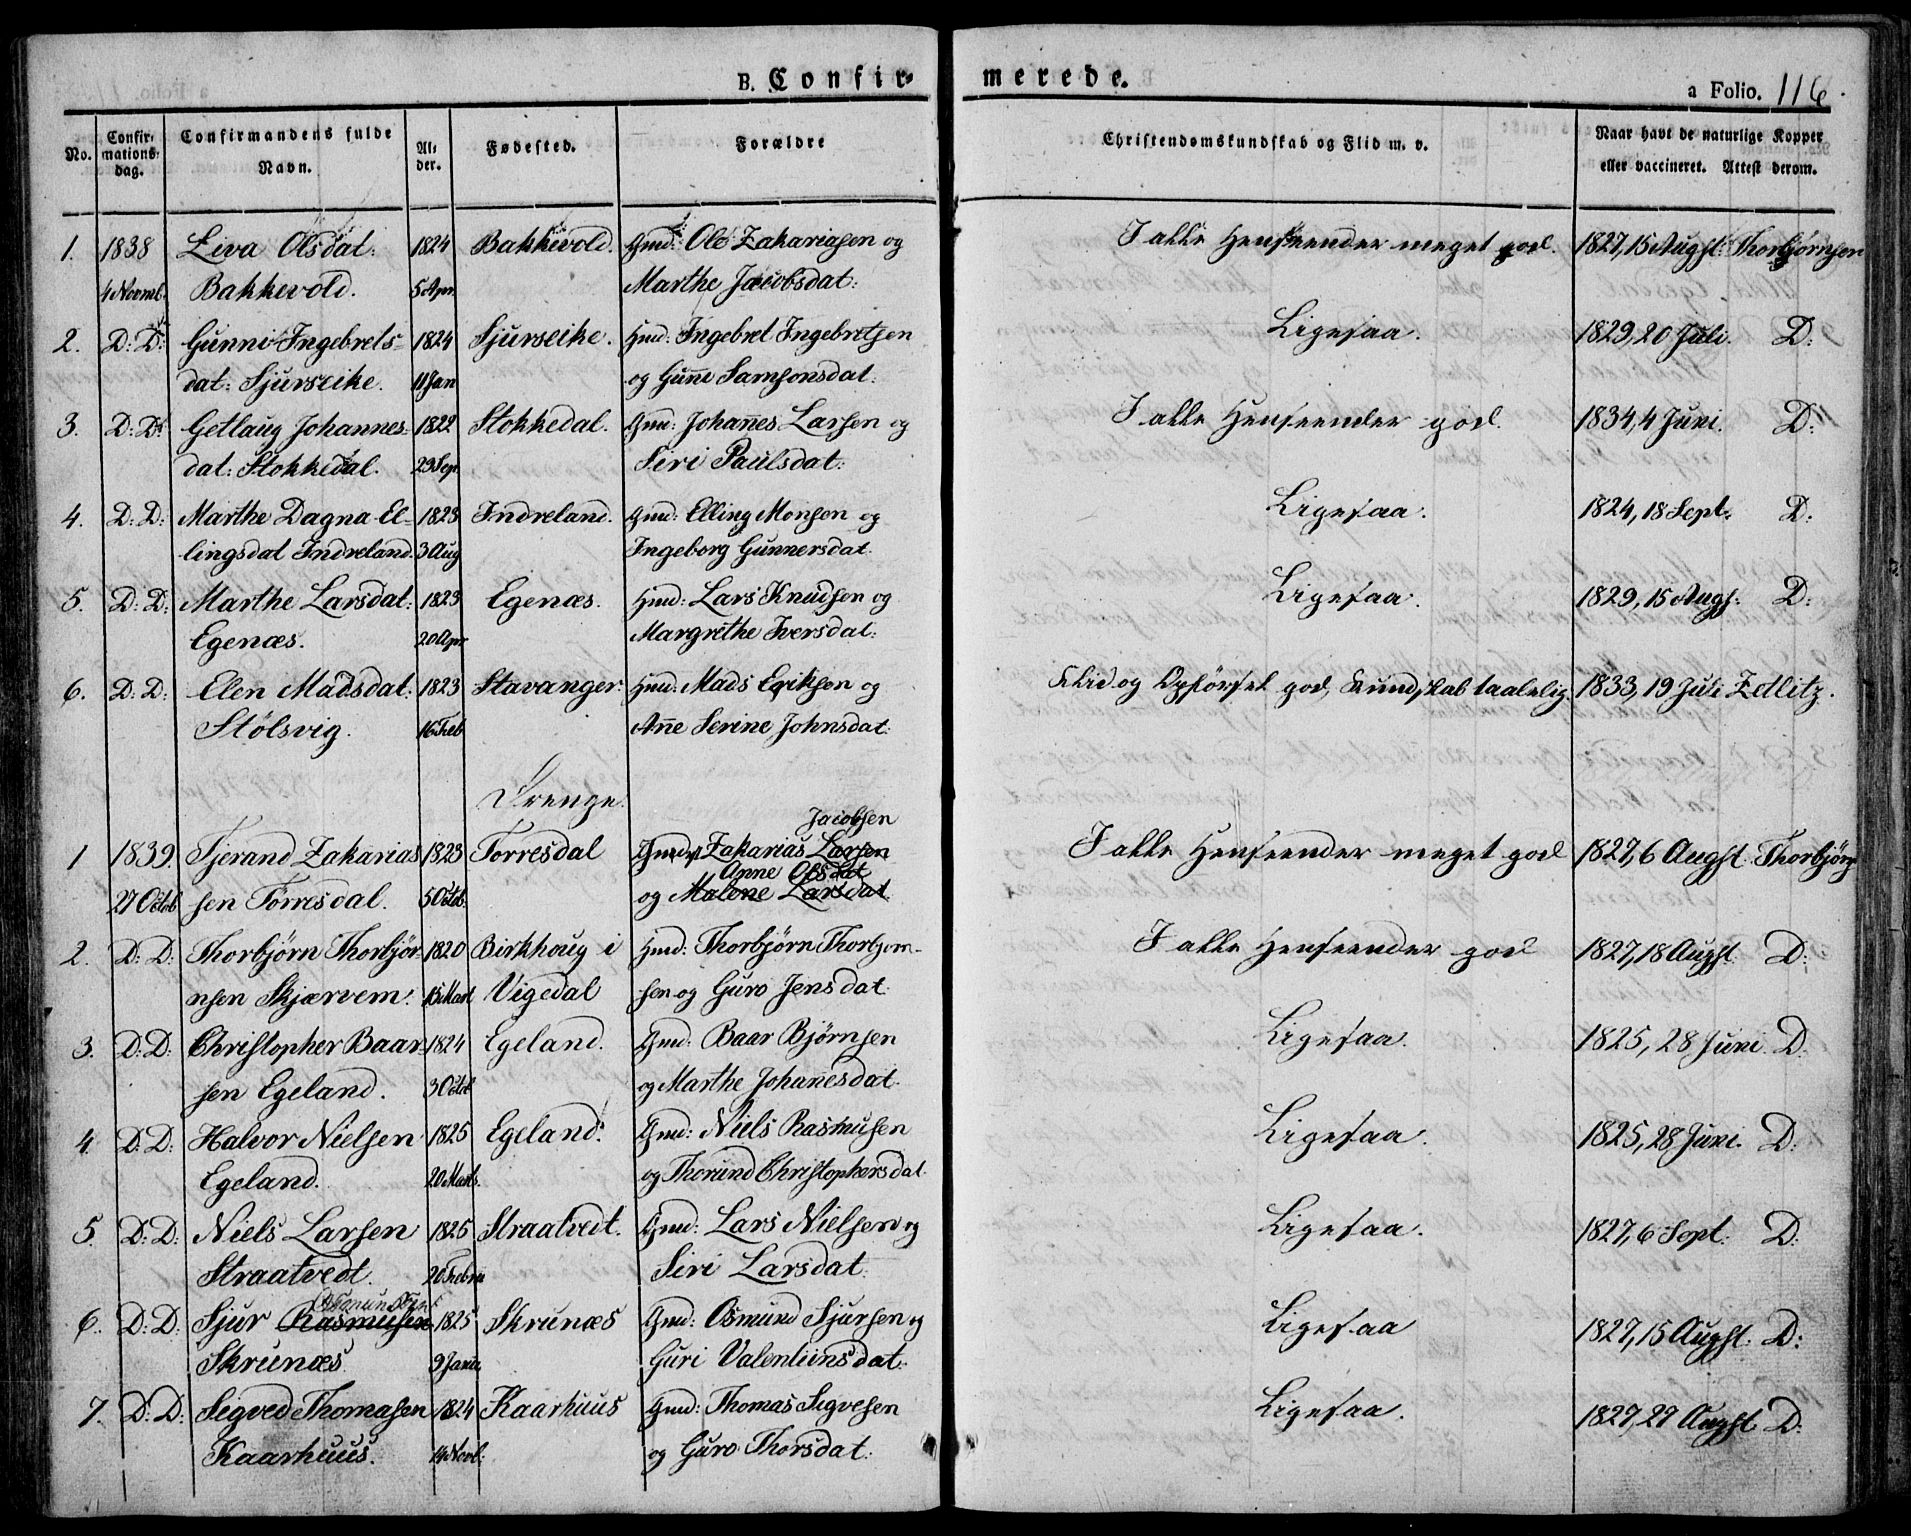 B. Confir- merede.
a Folio. 116.
No. Confir-mations-dag. Confirmandens fulde Navn. Al-der. Fødested. Forældre Christendomskundskab og Flid m. v. Naar havt de naturlige Kopper eller vaccineret. Attest derom.
1. 1838 Liva Olsdat: 1824 Bakkevold. Gmd: Ole Zakariasen og I alle Henseender meget god. 1827, 15 Augst: Thorbjørnsen
4 Novmb. Bakkevold. 5 Apr. Marthe Jacobsdat:
2. D: D: Gunni Ingebrets- 1824 Sjurseike. Hmd: Ingebret Ingebretsen Ligesaa. 1829, 20 Juli. D:
dat: Sjurseike. 11 Jan og Guñe Samsonsdat:
3. D: D: Getlaug Johannes- 1822 Stokkedal. Gmd: Johañes Larsen og I alle Henseender god. 1834, 4 Juni. D:
dat: Stokkedal. 29 Sep. Siri Paulsdat:
4. D: D: Marthe Dagna El- 1823 Indreland. Gmd: Elling Monsen og Ligesaa. 1824, 18 Sept: D:
lingsdat Indreland. 3 Aug Ingeborg Gunnersdat.
5. D: D: Marthe Larsdat: 1823 Egenæs. Hmd: Lars Knudsen og Ligesaa. 1829, 15 Augs: D:
Egenæs. 20 Apr. Margrethe Iversdat:
6. D: D: Elen Madsdat: 1823 Stavanger. Hmd: Mads Eriksen og Flid og Opførsel god, Kundskab taalelig. 1833, 19 Juli Zetlitz.
Stølsvig. 16 Feb Añe Serine Johnsdat:
Drenge.
Jacobsen
1 1839. Tjerand Zakarias 1823 Torresdal Gmd: Zakarias Larsen I alle Henseender meget god 1827, 6 Augst. Thorbjørn
Anne Olsdat
27 Octob sen Torresdal. 5 Octob. og Malene Larsdat.
2. D: D: Thorbjørn Thorbjør- 1820 Birkhoug i Hmd: Thorbjørn Thorbjørn- I alle Henseender god 1827, 18 Augst. D:
nsen Skjærvem. 15 Mart Vigedal sen og Guro Jensdat.
3. D: D: Christopher Baar- 1824 Egeland. Gmd: Baar Bjørnsen Ligesaa. 1825, 28 Juni D.
sen Egeland. 3 Octob og Marthe Johañesdat.
4. D: D: Halvor Nielsen 1825 Egeland. Gmd: Niels Rasmusen Ligesaa. 1825, 28 Juni. D:
Egeland. 20 Marts. og Thorund Christophersdat.
5. D: D: Niels Larsen 1825 Straatvedt. Gmd: Lars Nielsen og Ligesaa. 1827, 6 Sept: D:
Straatvedt. 20 Febru Siri Larsdat.
Osmundsen
6. D: D: Sjur Rasmusen 1825 Skrunæs Gmd: Osmund Sjursen og Ligesaa 1827, 15 Augst. D:
Skrunæs 9 Janu. Guri Valentinsdat:
7. D: D. Segved Thomasen 1824 Kaarhuus Gmd: Thomas Segvesen Ligesaa. 1827, 27 Augst D:
Kaarhuus. 14 Novb: og Guro Thorsdat: